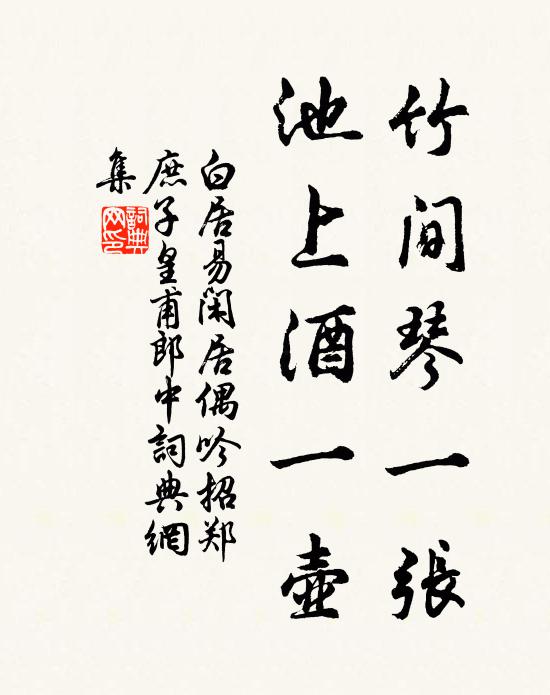 竹間琴一張
池上酒一壺
白居易閑居偶吟招郑
庶子皇甫郎中詞典網
集
詞典
网印